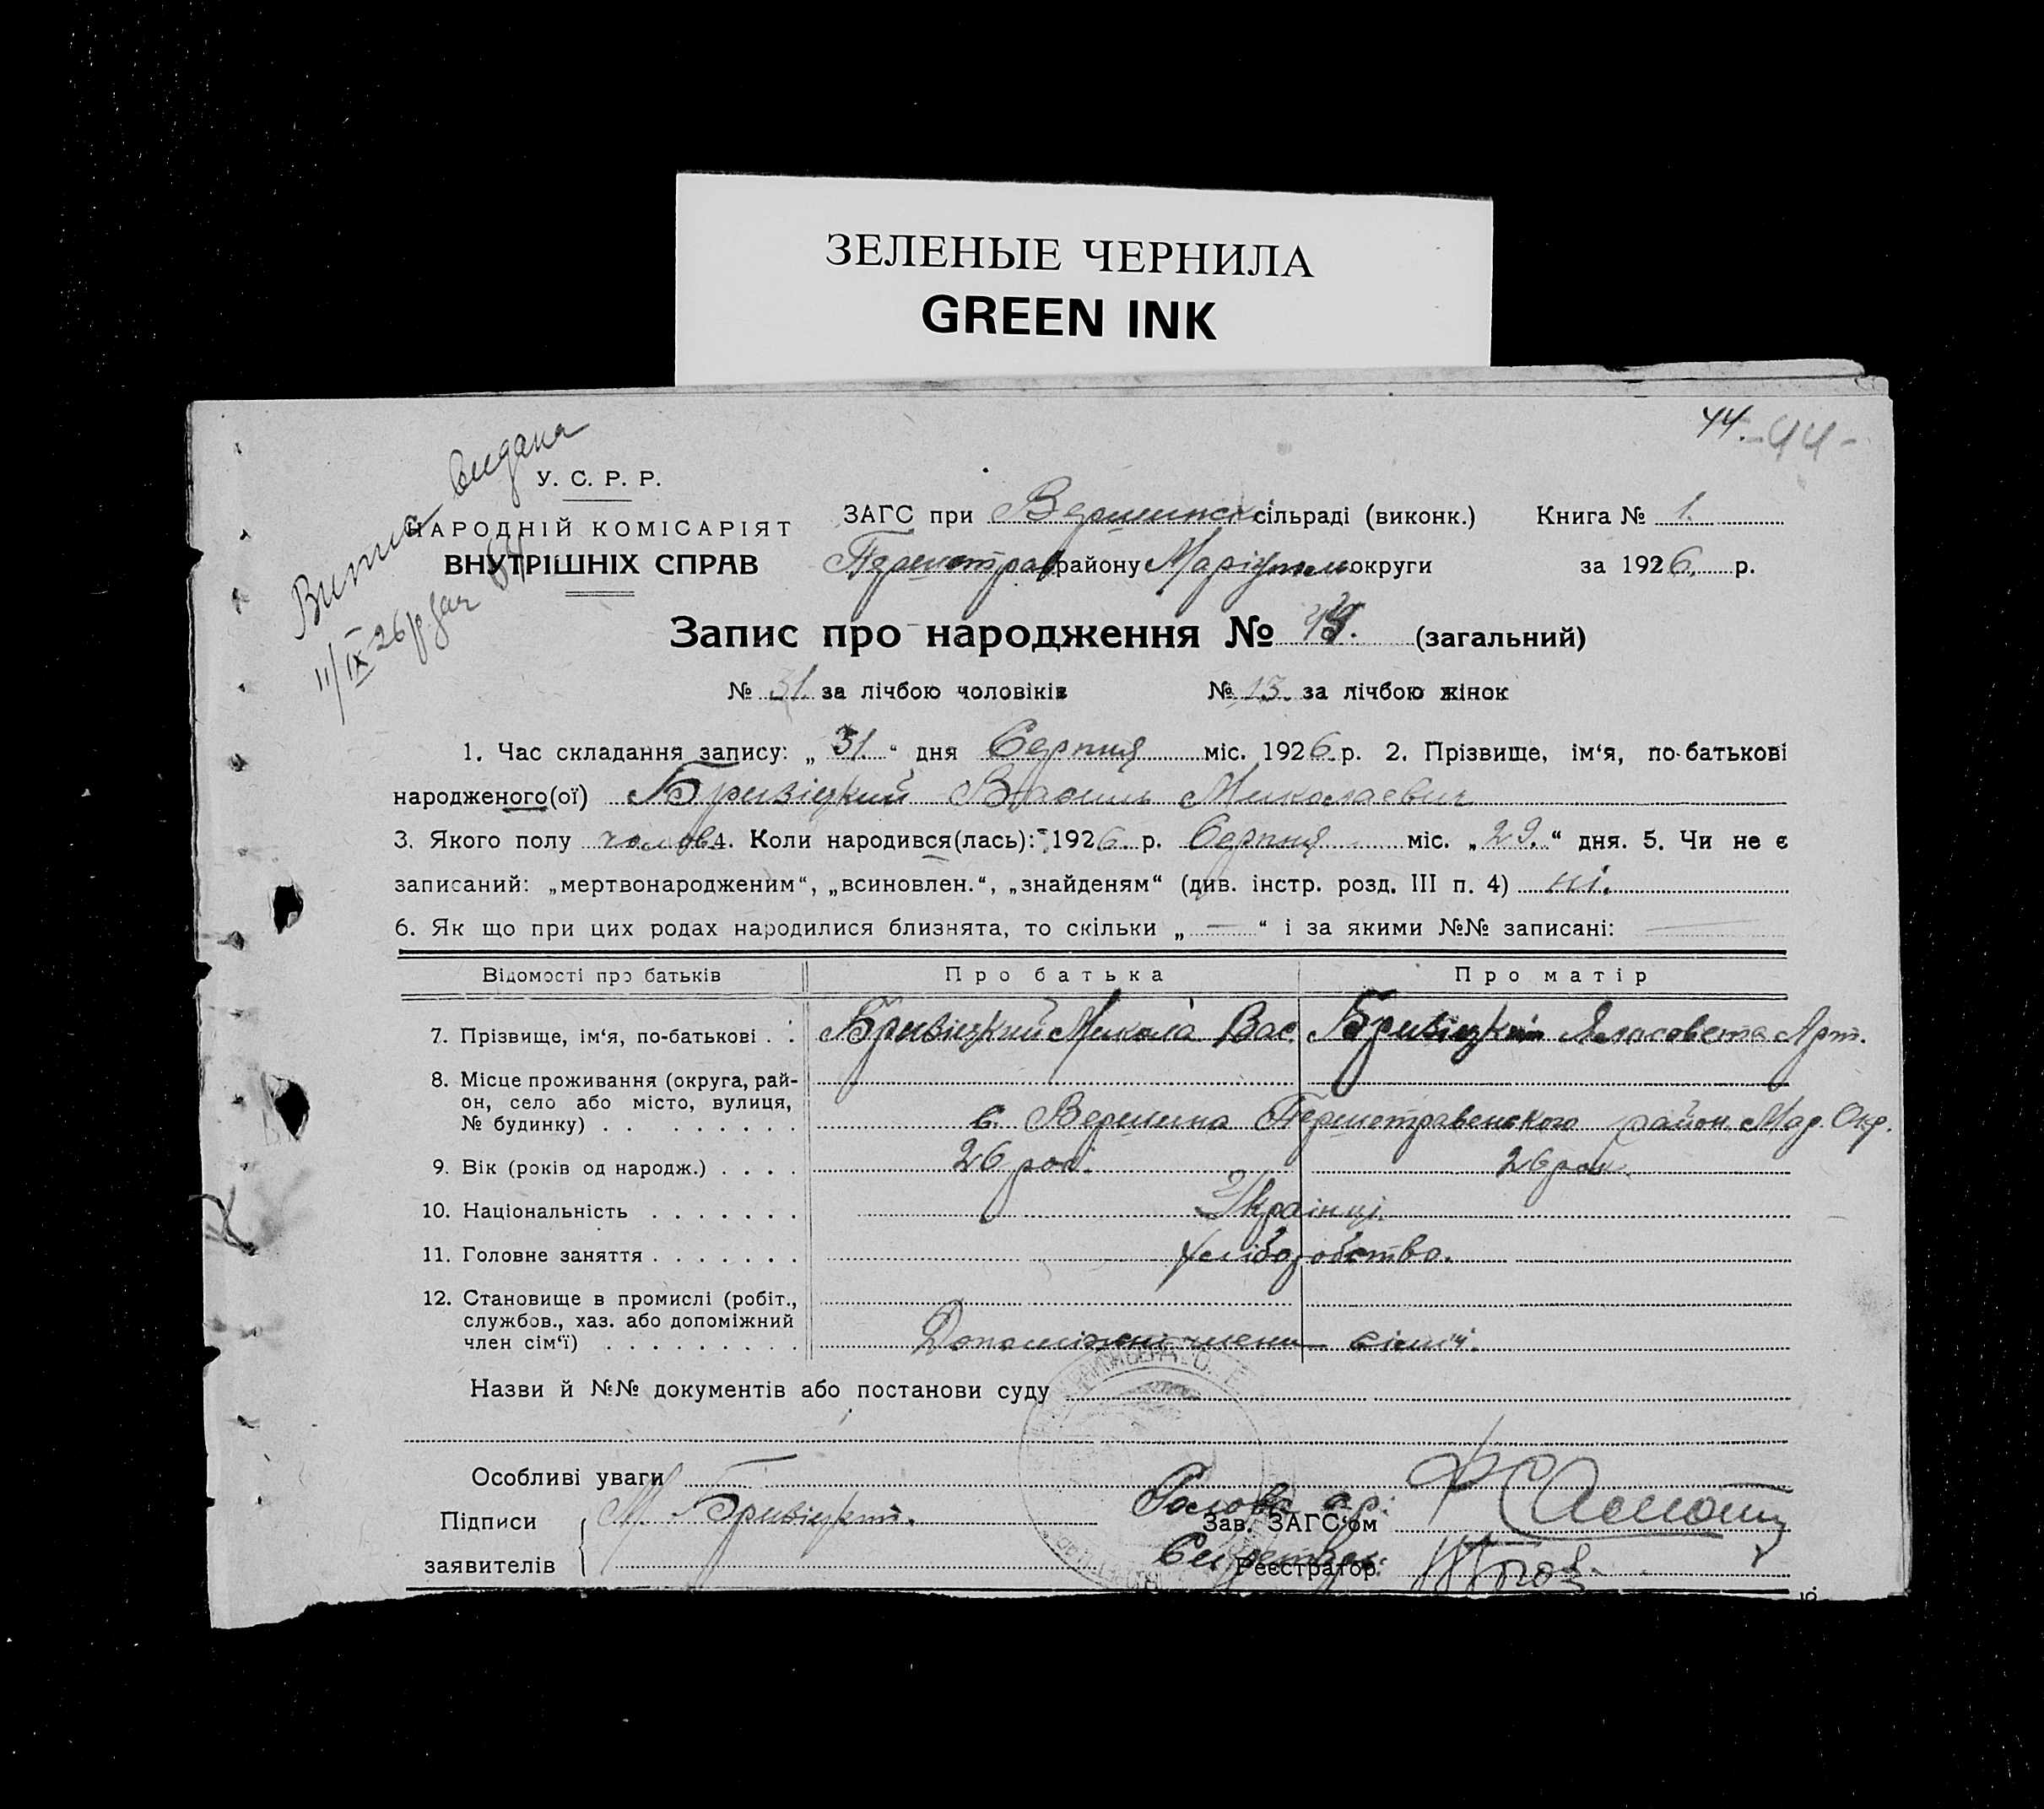 ЗЕЛЕНЫЕ ЧЕРНИЛА
GREEN INK
44. -44-
Випис видана
11/IX 26 р. за №
У. С. Р. Р.
НАРОДНІЙ КОМІСАРІЯТ
ВНУТРІШНІХ СПРАВ
ЗАГС при Вершинск сільраді (виконк.) Книга № 1.
Першотрав району Маріупил округи за 1926. р.
Запис про народження № 44. (загальний)
№ 31. за лічбою чоловіків № 13. за лічбою жінок
1. Час складання запису: „31.“ дня Серпня міс. 1926.р. 2. Прізвище, ім‘я, по-батькові
народженого(ої) Бривіцкий Василь Миколаевич
3. Якого полу чолов. 4. Коли народився(лась): 1926. р. Серпня міс. „29.“ дня. 5. Чи не є
записаний: „мертвонародженим“, „всиновлен.“, „знайденям“ (див. інстр. розд. III п. 4) ні.
6. Як що при цих родах народилися близнята, то скільки „—“ і за якими №№ записані: —
Відомості про батьків Про батька Про матір
7. Прізвище, ім‘я, по-батькові . . Бривіцкий Микола Вас. Бривіцкая Ялисовета Арт.
8. Місце проживання (округа, рай-
он, село або місто, вулиця,
№ будинку) . . . . . . . . с. Вершина Першотравенського район Мар. Окр.
9. Вік (років од народж.) . . . . 26 рок. 26 рок.
10. Національність . . . . . . . Українці.
11. Головне заняття . . . . . . . хліборобство.
12. Становище в промислі (робіт.,
службов., хаз. або допоміжний
член сім‘ї) . . . . . . . . . Допоміжні члени сімї.
Назви й №№ документів або постанови суду
Особливі уваги
Підписи М. Бривіцкий. Голова с.р.
Зав. ЗАГС‘ом
заявителів Секретарь
Реєстратор